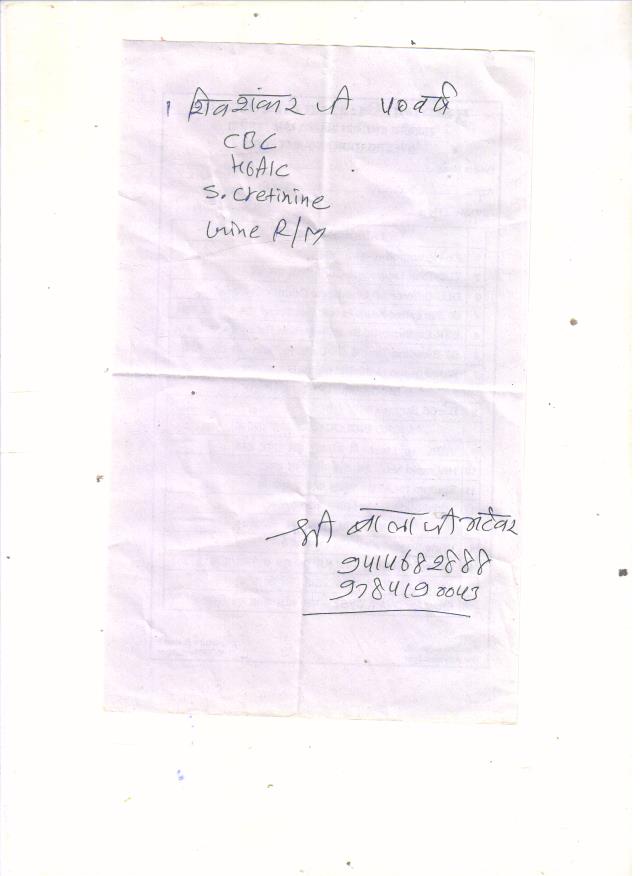 1 शिवशंकर जी 40 वर्ष
CBC
HbA1C
S. Cretinine
Urine R/M
श्री बालाजी
9414682888
9784190043